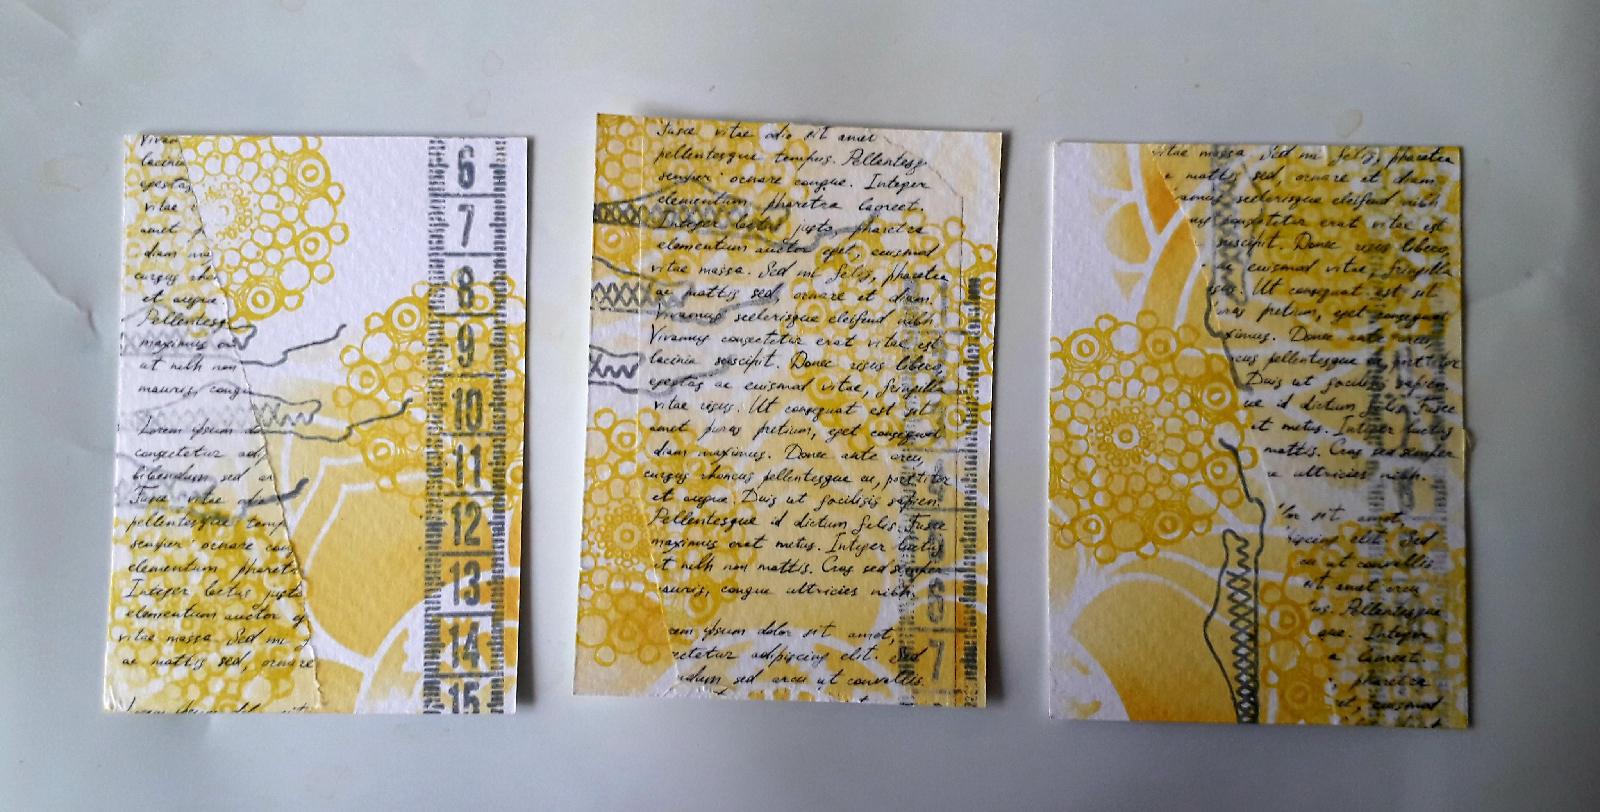 Vivam
lacinia
egestas
vitae
amet
diam
cursus rho
et augue.
Pellentesq
maximus
ut nibh non
mauris, congu
Lorem ipsum do
consectetur adi
bibendum sed ar
Fusce vitae odio
pellentesque temp
semper ornare con
elementum pharetr
Integer lectus justo
elementum auctor eg
vitae massa. Sed mi
ac mattis sed, ornare
6
7
8
9
10
11
12
13
14
15
Fusce vitae odio sit amet
pellentesque tempus. Pellentesq
semper ornare congue. Integer
elementum pharetra laoreet.
Integer lectus justo, pharetra
elementum auctor eget, euismod
vitae massa. Sed mi felis, pharetra
ac mattis sed, ornare et diam.
Vivamus scelerisque eleifend nibh
Vivamus consectetur erat vitae est
lacinia suscipit. Donec risus libero,
egestas ac euismod vitae, fringilla
vitae risus. Ut consequat est sit
amet purus pretium, eget consequat
diam maximus. Donec ante arcu,
cursus rhoncus pellentesque eu, porttitor
et augue. Duis ut facilisis sapien.
Pellentesque id dictum felis. Fusce
maximus erat metus. Integer luctus
ut nibh non mattis. Cras sed semper
mauris, congue ultricies nibh.
rem ipsum dolor sit amet,
ectetur adipiscing elit. Sed
ndum sed arcu ut convallis.
6
7
vitae massa. Sed mi felis, pharetra
c mattis sed, ornare et diam.
amus scelerisque eleifend nibh
consectetur erat vitae est
suscipit. Donec risus libero,
ac euismod vitae, fringilla
risus. Ut consequat est sit
urus pretium, eget consequat
ximus. Donec ante arcu,
ncus pellentesque eu, porttitor
Duis ut facilisis sapien.
ue id dictum felis. Fusce
t metus. Integer luctus
mattis. Cras sed semper
ultricies nibh.
lor sit amet,
iscing elit. Sed
cu ut convallis.
sit amet
us. Pellentesque
gue. Integer
a laoreet.
pharetra
et, euismod